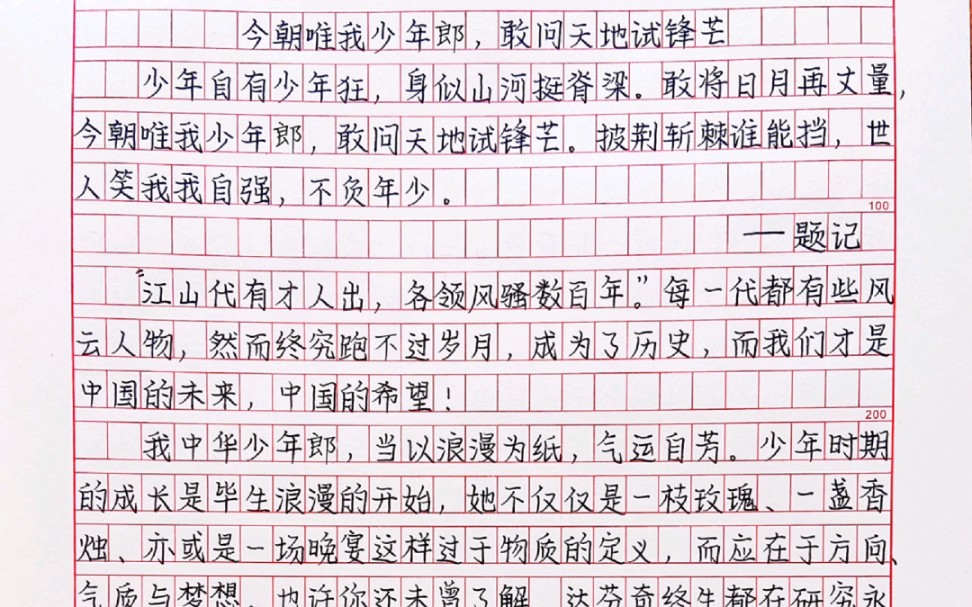 今朝唯我少年郎，敢问天地试锋芒
少年自有少年狂，身似山河挺脊梁。敢将日月再丈量，
今朝唯我少年郎，敢问天地试锋芒。披荆斩棘谁能挡，世
人笑我我自强，不负年少。
100
——题记
“江山代有才人出，各领风骚数百年。”每一代都有些风
云人物，然而终究跑不过岁月，成为了历史，而我们才是
中国的未来，中国的希望！
200
我中华少年郎，当以浪漫为纸，气运自芳。少年时期
的成长是毕生浪漫的开始，她不仅仅是一枝玫瑰、一盏香
烛、亦或是一场晚宴这样过于物质的定义，而应在于方向、
气质与梦想。也许你还未曾了解，达芬奇终生都在研究永